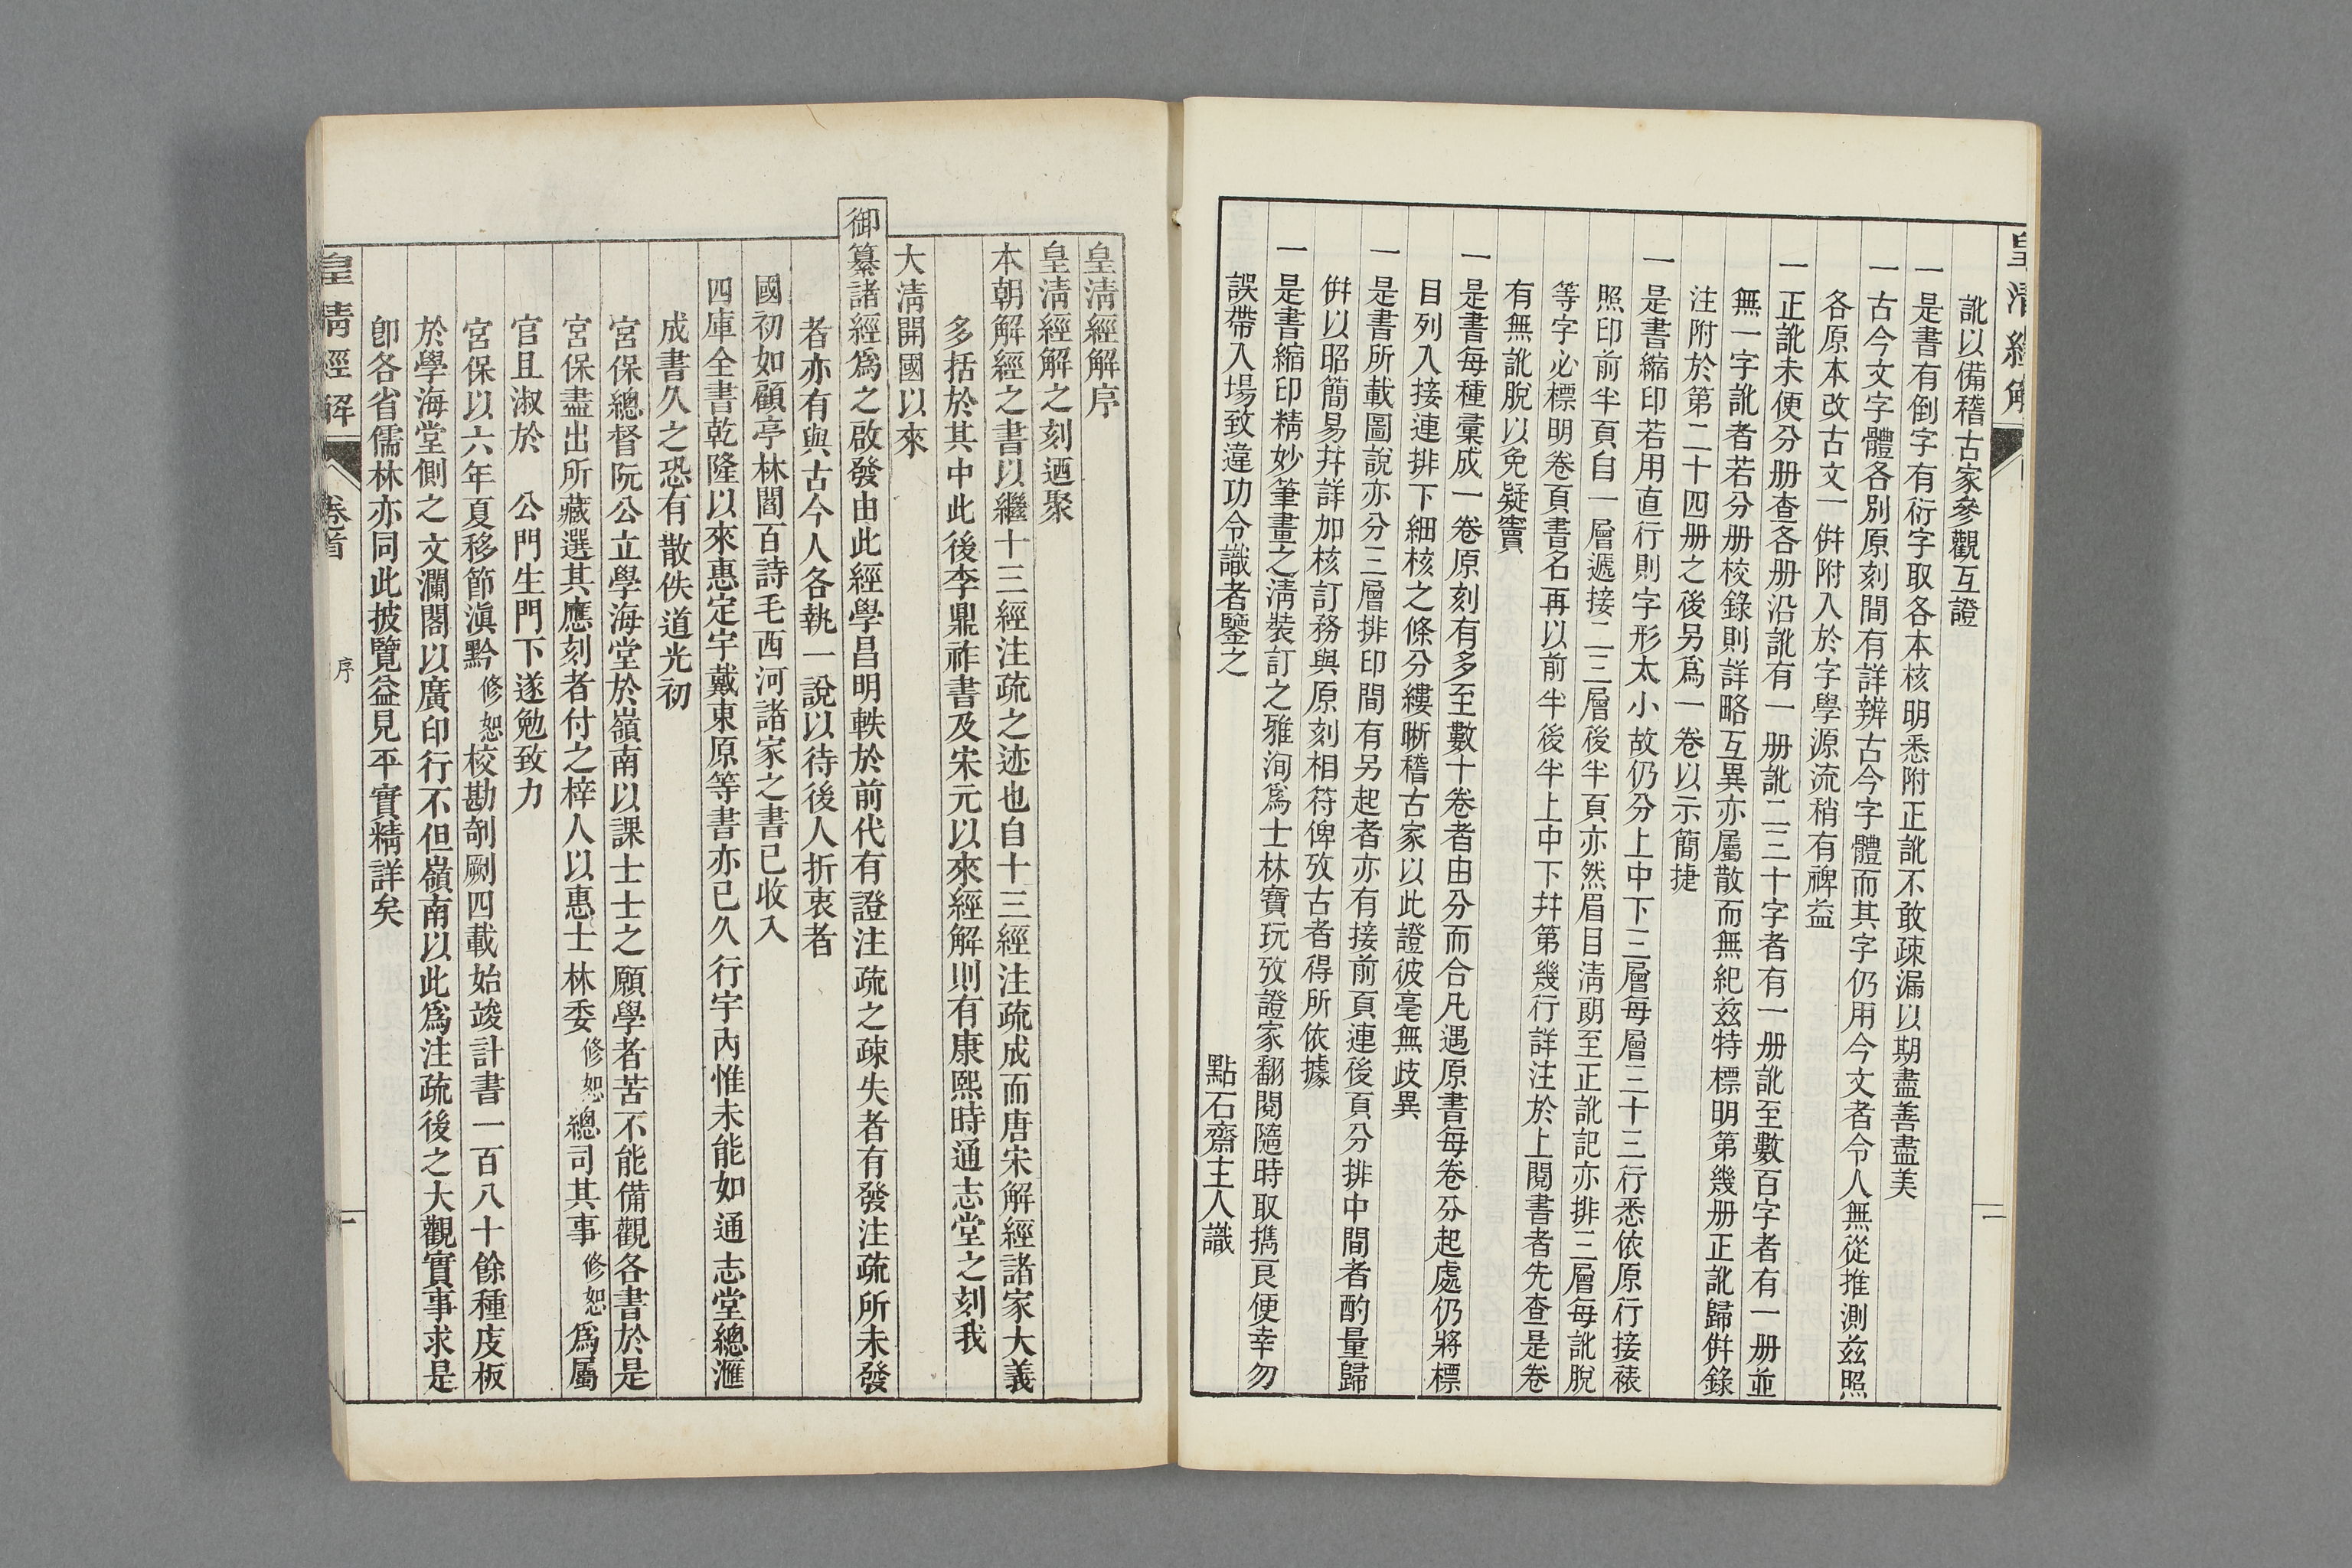 皇清經解
二
訛以備稽古家參觀互證
一是書有倒字有衍字取各本核明悉附正訛不敢疎漏以期盡善盡美
一古今文字體各別原刻間有詳辨古今字體而其字仍用今文者令人無從推測茲照
各原本改古文一併附入於字學源流稍有裨益
一正訛未便分册查各册沿訛有一册訛二三十字者有一册訛至數百字者有一册並
無一字訛者若分册校錄則詳略互異亦屬散而無紀茲特標明第幾册正訛歸併錄
注附於第二十四册之後另爲一卷以示簡捷
一是書縮印若用直行則字形太小故仍分上中下三層每層三十三行悉依原行接裱
照印前半頁自一層遞接二三層後半頁亦然眉目清朗至正訛記亦排三層每訛脫
等字必標明卷頁書名再以前半後半上中下幷第幾行詳注於上閱書者先查是卷
有無訛脫以免疑竇
一是書每種彙成一卷原刻有多至數十卷者由分而合凡遇原書每卷分起處仍將標
目列入接連排下細核之條分縷晰稽古家以此證彼毫無歧異
一是書所載圖說亦分三層排印間有另起者亦有接前頁連後頁分排中間者酌量歸
併以昭簡易幷詳加核訂務與原刻相符俾攷古者得所依據
一是書縮印精妙筆畫之淸裝訂之雅洵爲士林寶玩攷證家翻閱隨時取携艮便幸勿
誤帶入場致違功令識者鑒之
點石齋主人識
皇淸經解序
皇淸經解之刻迺聚
本朝解經之書以繼十三經注疏之迹也自十三經注疏成而唐宋解經諸家大義
多括於其中此後李鼎祚書及宋元以來經解則有康熙時通志堂之刻我
大淸開國以來
御纂諸經爲之啟發由此經學昌明軼於前代有證注疏之疎失者有發注疏所未發
者亦有與古今人各執一說以待後人折衷者
國初如顧亭林閻百詩毛西河諸家之書已收入
四庫全書乾隆以來惠定宇戴東原等書亦已久行宇內惟未能如通志堂總滙
成書久之恐有散佚道光初
宮保總督阮公立學海堂於嶺南以課士士之願學者苦不能備觀各書於是
宮保盡出所藏選其應刻者付之梓人以惠士林委修恕總司其事修恕爲屬
官且淑於 公門生門下遂勉致力
宮保以六年夏移節滇黔修恕校勘剞劂四載始竣計書一百八十餘種庋板
於學海堂側之文瀾閣以廣印行不但嶺南以此爲注疏後之大觀實事求是
卽各省儒林亦同此披覽益見平實精詳矣
皇清經解
卷首
序
一